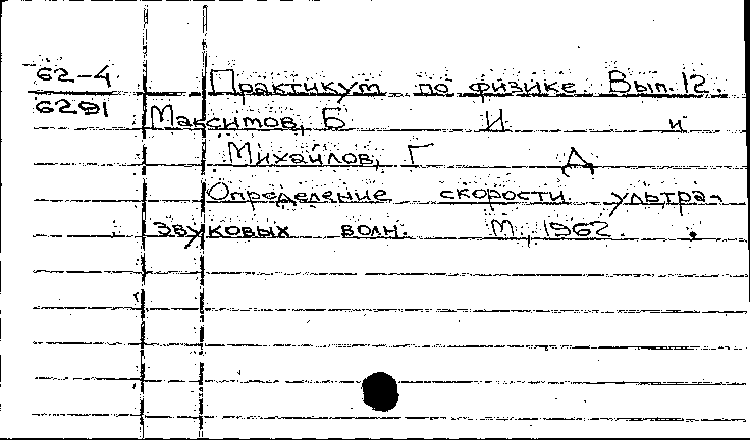 62-4 Практикум по физике. Вып. 12.
6291 Максимов, Б И и
Михайлов, Г Д
Определение скорости ультра-
звуковых волн. М., 1962.